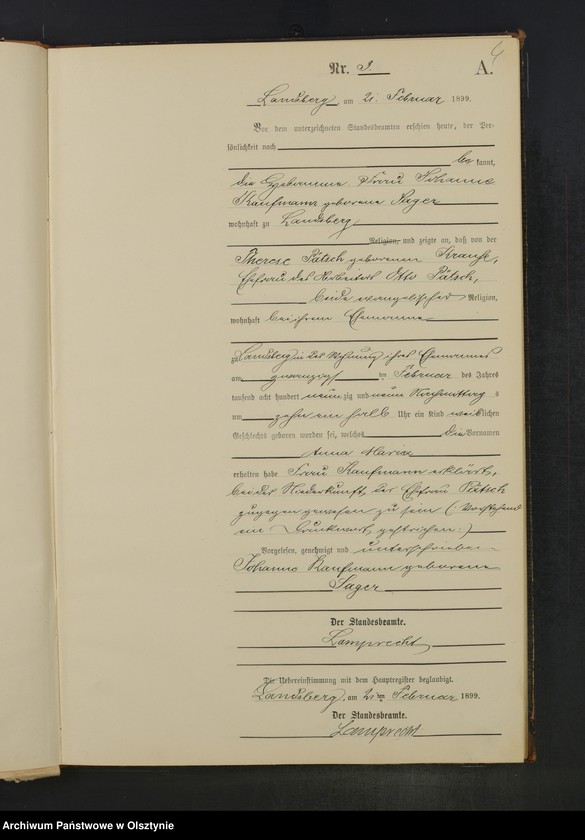 4
Nr. 9. A.
Landsberg, am 21. Februar 1899.
Vor dem unterzeichneten Standesbeamten erschien heute, der Per-
sönlichkeit nach
be kannt,
die Hebamme Frau Johanne
Kaufmann geborene Sager
wohnhaft zu Landsberg
Religion, und zeigte an, daß von der
Therese Pätsch geborenen Krause,
Ehefrau des Arbeiters Otto Pätsch,
beide evangelischer Religion,
wohnhaft bei ihrem Ehemanne
zu Landsberg in der Wohnung ihres Ehemannes
am zwanzigsten Februar des Jahres
tausend acht hundert neun zig und neun Nachmittags
um zehn ein halb Uhr ein Kind weib lichen
Geschlechts geboren worden sei, welches die Vornamen
Anna Maria
erhalten habe Frau Kaufmann erklärt,
bei der Niederkunft der Ehefrau Pätsch
zugegen gewesen zu sein (: Vorstehend
ein Druckwort gestrichen :)
Vorgelesen, genehmigt und unterschrieben
Johanne Kaufmann geborene
Sager
Der Standesbeamte.
Lamprecht
Die Uebereinstimmung mit dem Hauptregister beglaubigt.
Landsberg, am 21ten Februar 1899.
Der Standesbeamte.
Lamprecht
Archiwum Państwowe w Olsztynie